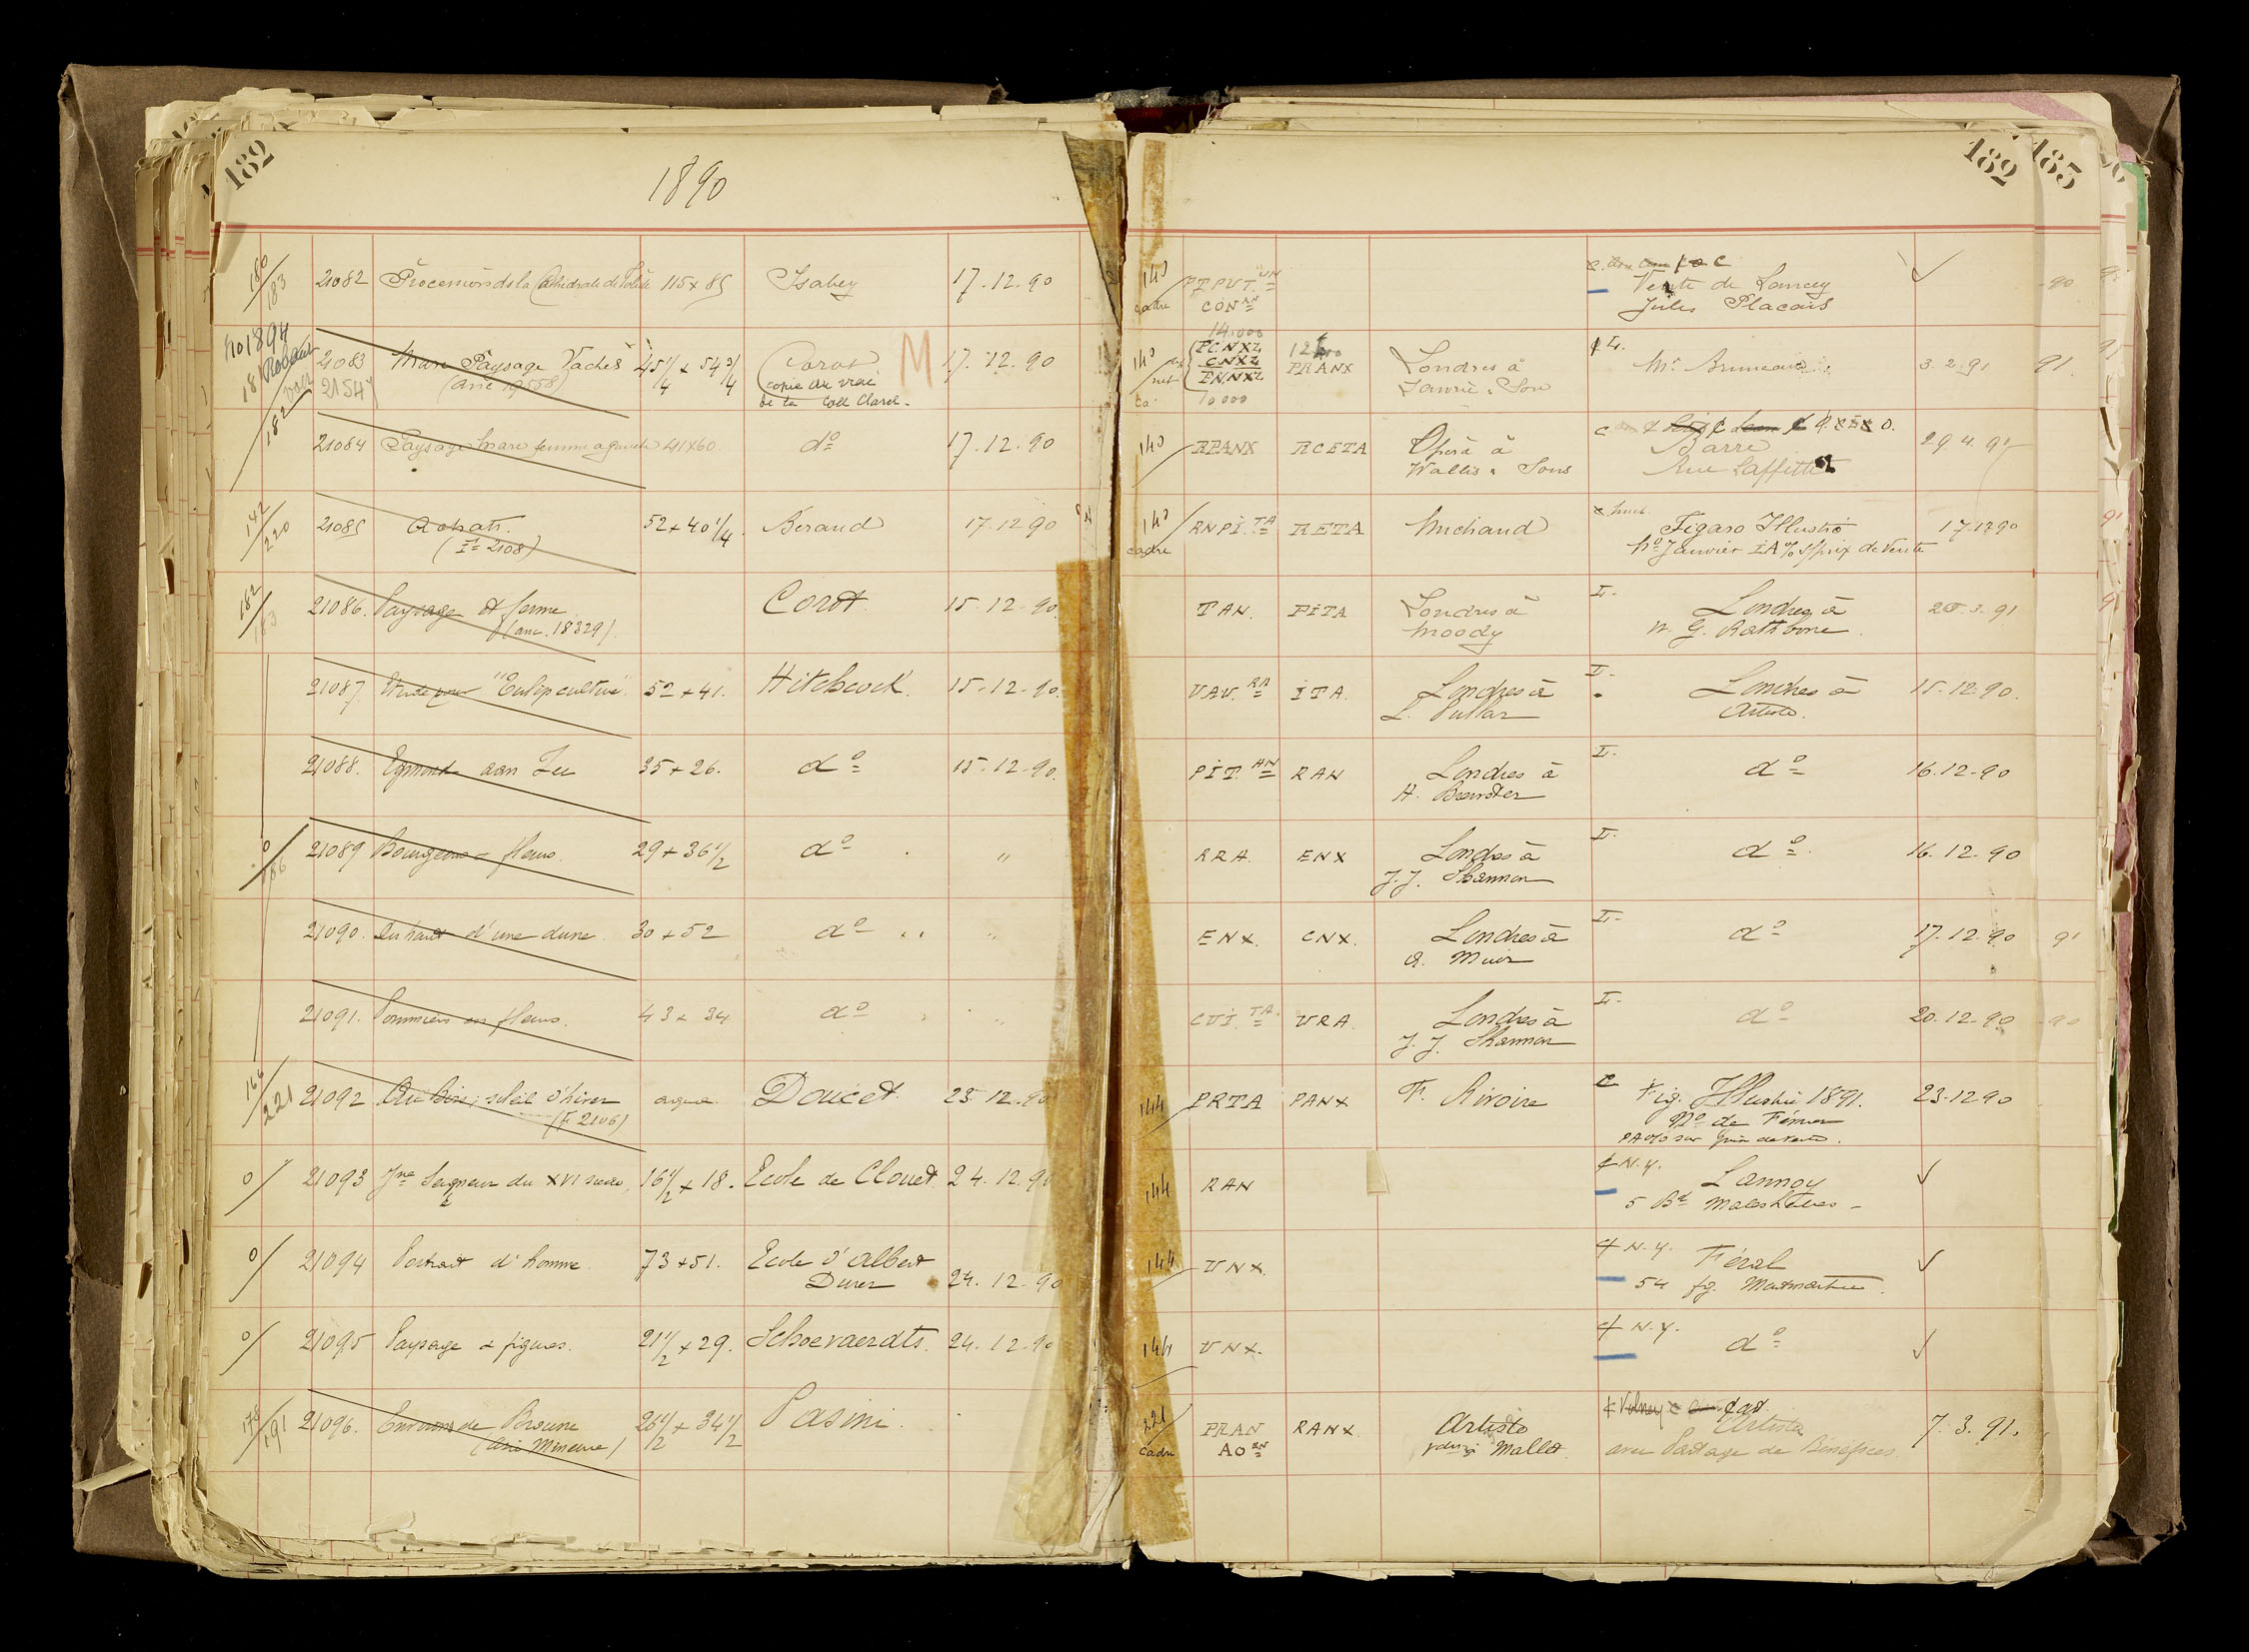 182
1890
182
185
180/83 21082 Procession ds la Cathédrale de Tolède 115 x 85 Isabey 17.12.90
140 cadre PTPUT. UN CON AN Vente de Lancey ✓ 90
Jules Placais
no 1894 Robaut
21083 Mare Paysage Vaches 45 1/4 x 54 3/4 Corot M 17.12.90
21547 (anc 19558) copie du vrai
de la Coll Clarel
140 14.000 PCNXZ CNXZ PNNXZ 10000 PRANX Londres à Mr Bruneau 3.2.91 91
182 21084 Paysage Mare femme a gauche 41x60 do 17.12.90
140 RPANX RCETA Opéra à Barre
Wallis & Sons Rue Laffitte
142/220 21085 Achats. 52 x 40 1/4 Beraud 17.12.90
(Ft 2108)
140 cadre RNPI. TA RETA Michaud Figaro Illustré 17.12.90
No Janvier IA % s/prix de Vente
182/83 21086. Paysage et ferme Corot 15.12.90
(anc. 18329)
TAN. PITA Londres à L. Londres à
Moody W. G. Rathbone
21087. Etude pour "Tulip culture" 52 x 41. Hitchcock. 15.12.90.
UAU. RA ITA. Londres à L. Londres à 15.12.90.
L. Pullar Artiste.
21088. Egmond aan Zee 35 x 26. do 15.12.90.
PIT. AN RAN Londres à L. do 16.12.90
H. Brewster
0/86 21089 Bourgeons & fleurs. 29 x 36 1/2 do "
RRA. ENX Londres à L. do 16.12.90
J.J. Shannon
21090. Du haut d'une dune. 30 x 52 do "
ENX. CNX. Londres à L. do 17.12.90 91
A. Muir
21091. Pommiers en fleurs. 43 x 34 do "
CUI. TA. URA. Londres à L. do 20.12.90 90
J. J. Shannon
166/221 21092 Au Bois, soleil d'hiver Doucet. 23.12.90
(F 2106)
144 PRTA PANX F. Rivoire C Fig. Illustré 1891. 23.12.90
No de Février
PA % sur prix de vente.
0/ 21093 Jne Seigneur du XVI siècle 16 1/2 x 18. Ecole de Clouet 24.12.90
144 RAN N.Y. Lannoy ✓
5 Bd Malesherbes
0/ 21094 Portrait d'homme 73 x 51. Ecole d'Albert
Durer 24.12.90
144 UNX. N.Y. Féral ✓
54 fg. Montmartre.
0/ 21095 Paysage & figures. 21 1/2 x 29. Schoevaerdts. 24.12.90
144 UNX. N.Y. do ✓
178/191 21096. Environs de Brousse 26 1/2 x 34 1/2 Pasini.
(Asie Mineure)
221 cadre PRAN RANX Artiste Artiste 7.3.91.
Ao RN Mallet avec Partage de Bénéfices